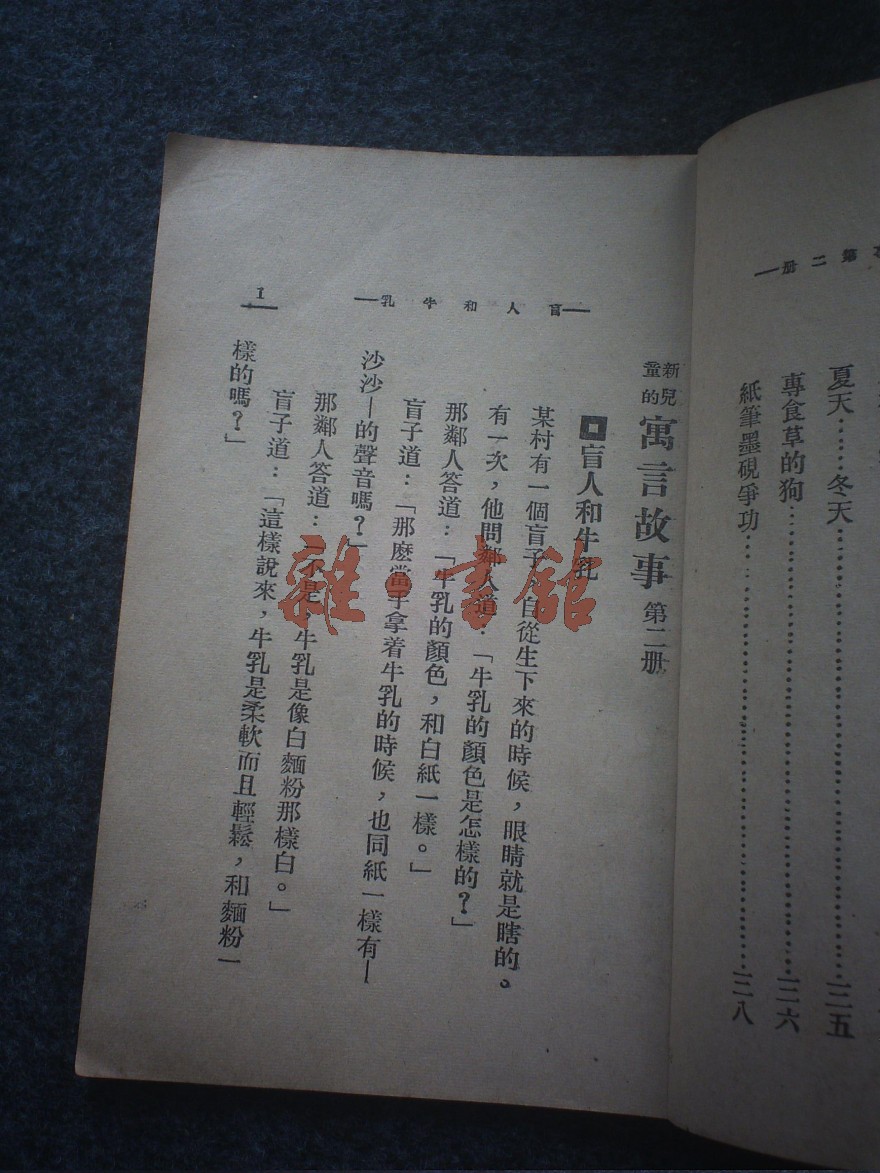 第二册
夏天……冬天……三五
專食草的狗……三六
紙筆墨硯爭功……三八
新兒童的寓言故事 第二册
盲人和牛乳
某村有一個盲子，自從生下來的時候，眼睛就是瞎的。
有一次，他問鄰人道：「牛乳的顏色是怎樣的？」
那鄰人答道：「牛乳的顏色，和白紙一樣。」
盲子道：「那麽當手拿着牛乳的時候，也同紙一樣有—
沙沙—的聲音嗎？」
那鄰人答道：「不是，牛乳是像白麵粉那樣白。」
盲子道：「這樣說來，牛乳是柔軟而且輕鬆，和麵粉一
樣的嗎？」
盲人和牛乳
1
雜·書館